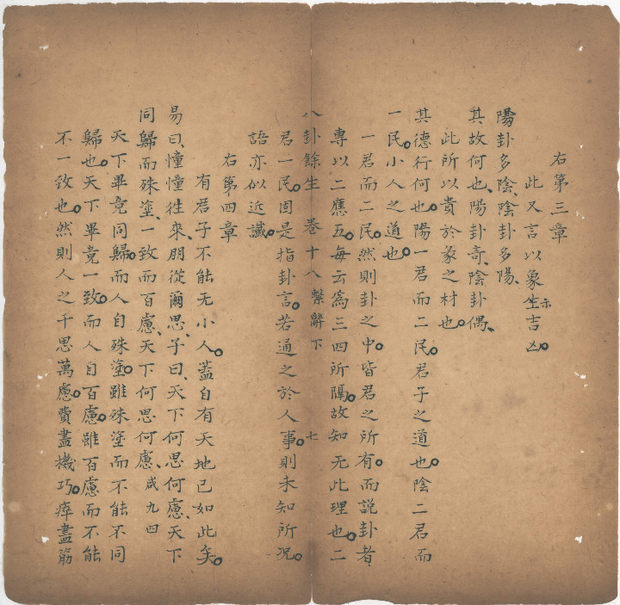 右第三章
此又言以象示生吉凶。
陽卦多陰、陰卦多陽、
其故何也、陽卦奇、陰卦偶、
此所以貴於彖之材也。
其德行何也。陽一君而二民。君子之道也。陰二君而
一民。小人之道也。
一君而二民。然則卦之中。皆君之所有。而說卦者
專以二應五。每云爲三四所隔。故知无此理也。二
八卦餘生 卷十八 繫辭下 七
君一民。固是指卦言。若通之於人事。則未知所況。
語亦似近讖。
右第四章
有君子不能无小人。蓋自有天地已如此矣。
易曰、憧憧徃來、朋從爾思、子曰、天下何思何慮、天下
同歸而殊塗、一致而百慮、天下何思何慮、咸九四
天下畢竟同歸。而人自殊塗。雖殊塗而不能不同
歸也。天下畢竟一致。而人自百慮。雖百慮而不能
不一致也。然則人之千思萬慮。費盡機巧。瘁盡筋